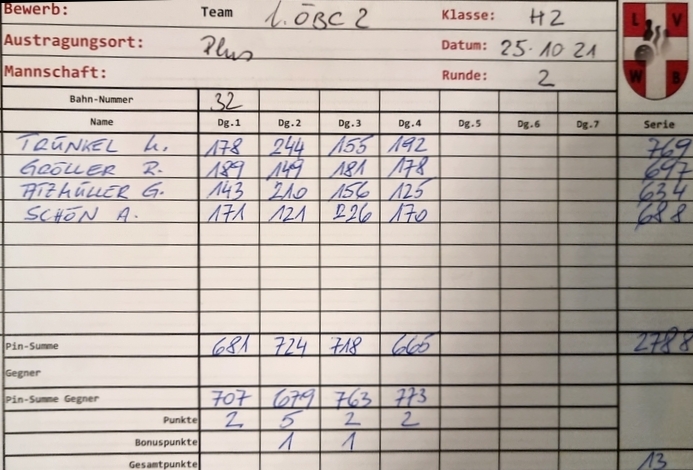 Bewerb: Team 1. ÖBC 2 Klasse: H2
Austragungsort: Plus Datum: 25.10 21
Mannschaft: Runde: 2
L V W B
Bahn-Nummer 32
Name Dg.1 Dg.2 Dg.3 Dg.4 Dg.5 Dg.6 Dg.7 Serie
TRÜNKEL H. 178 244 155 192 769
GRÖLLER R. 189 149 181 178 697
ATZMÜLLER G. 143 210 156 125 634
SCHÖN A. 171 121 226 170 688
Pin-Summe 681 724 718 665 2788
Gegner
Pin-Summe Gegner 707 679 763 773
Punkte 2 5 2 2
Bonuspunkte 1 1
Gesamtpunkte 13